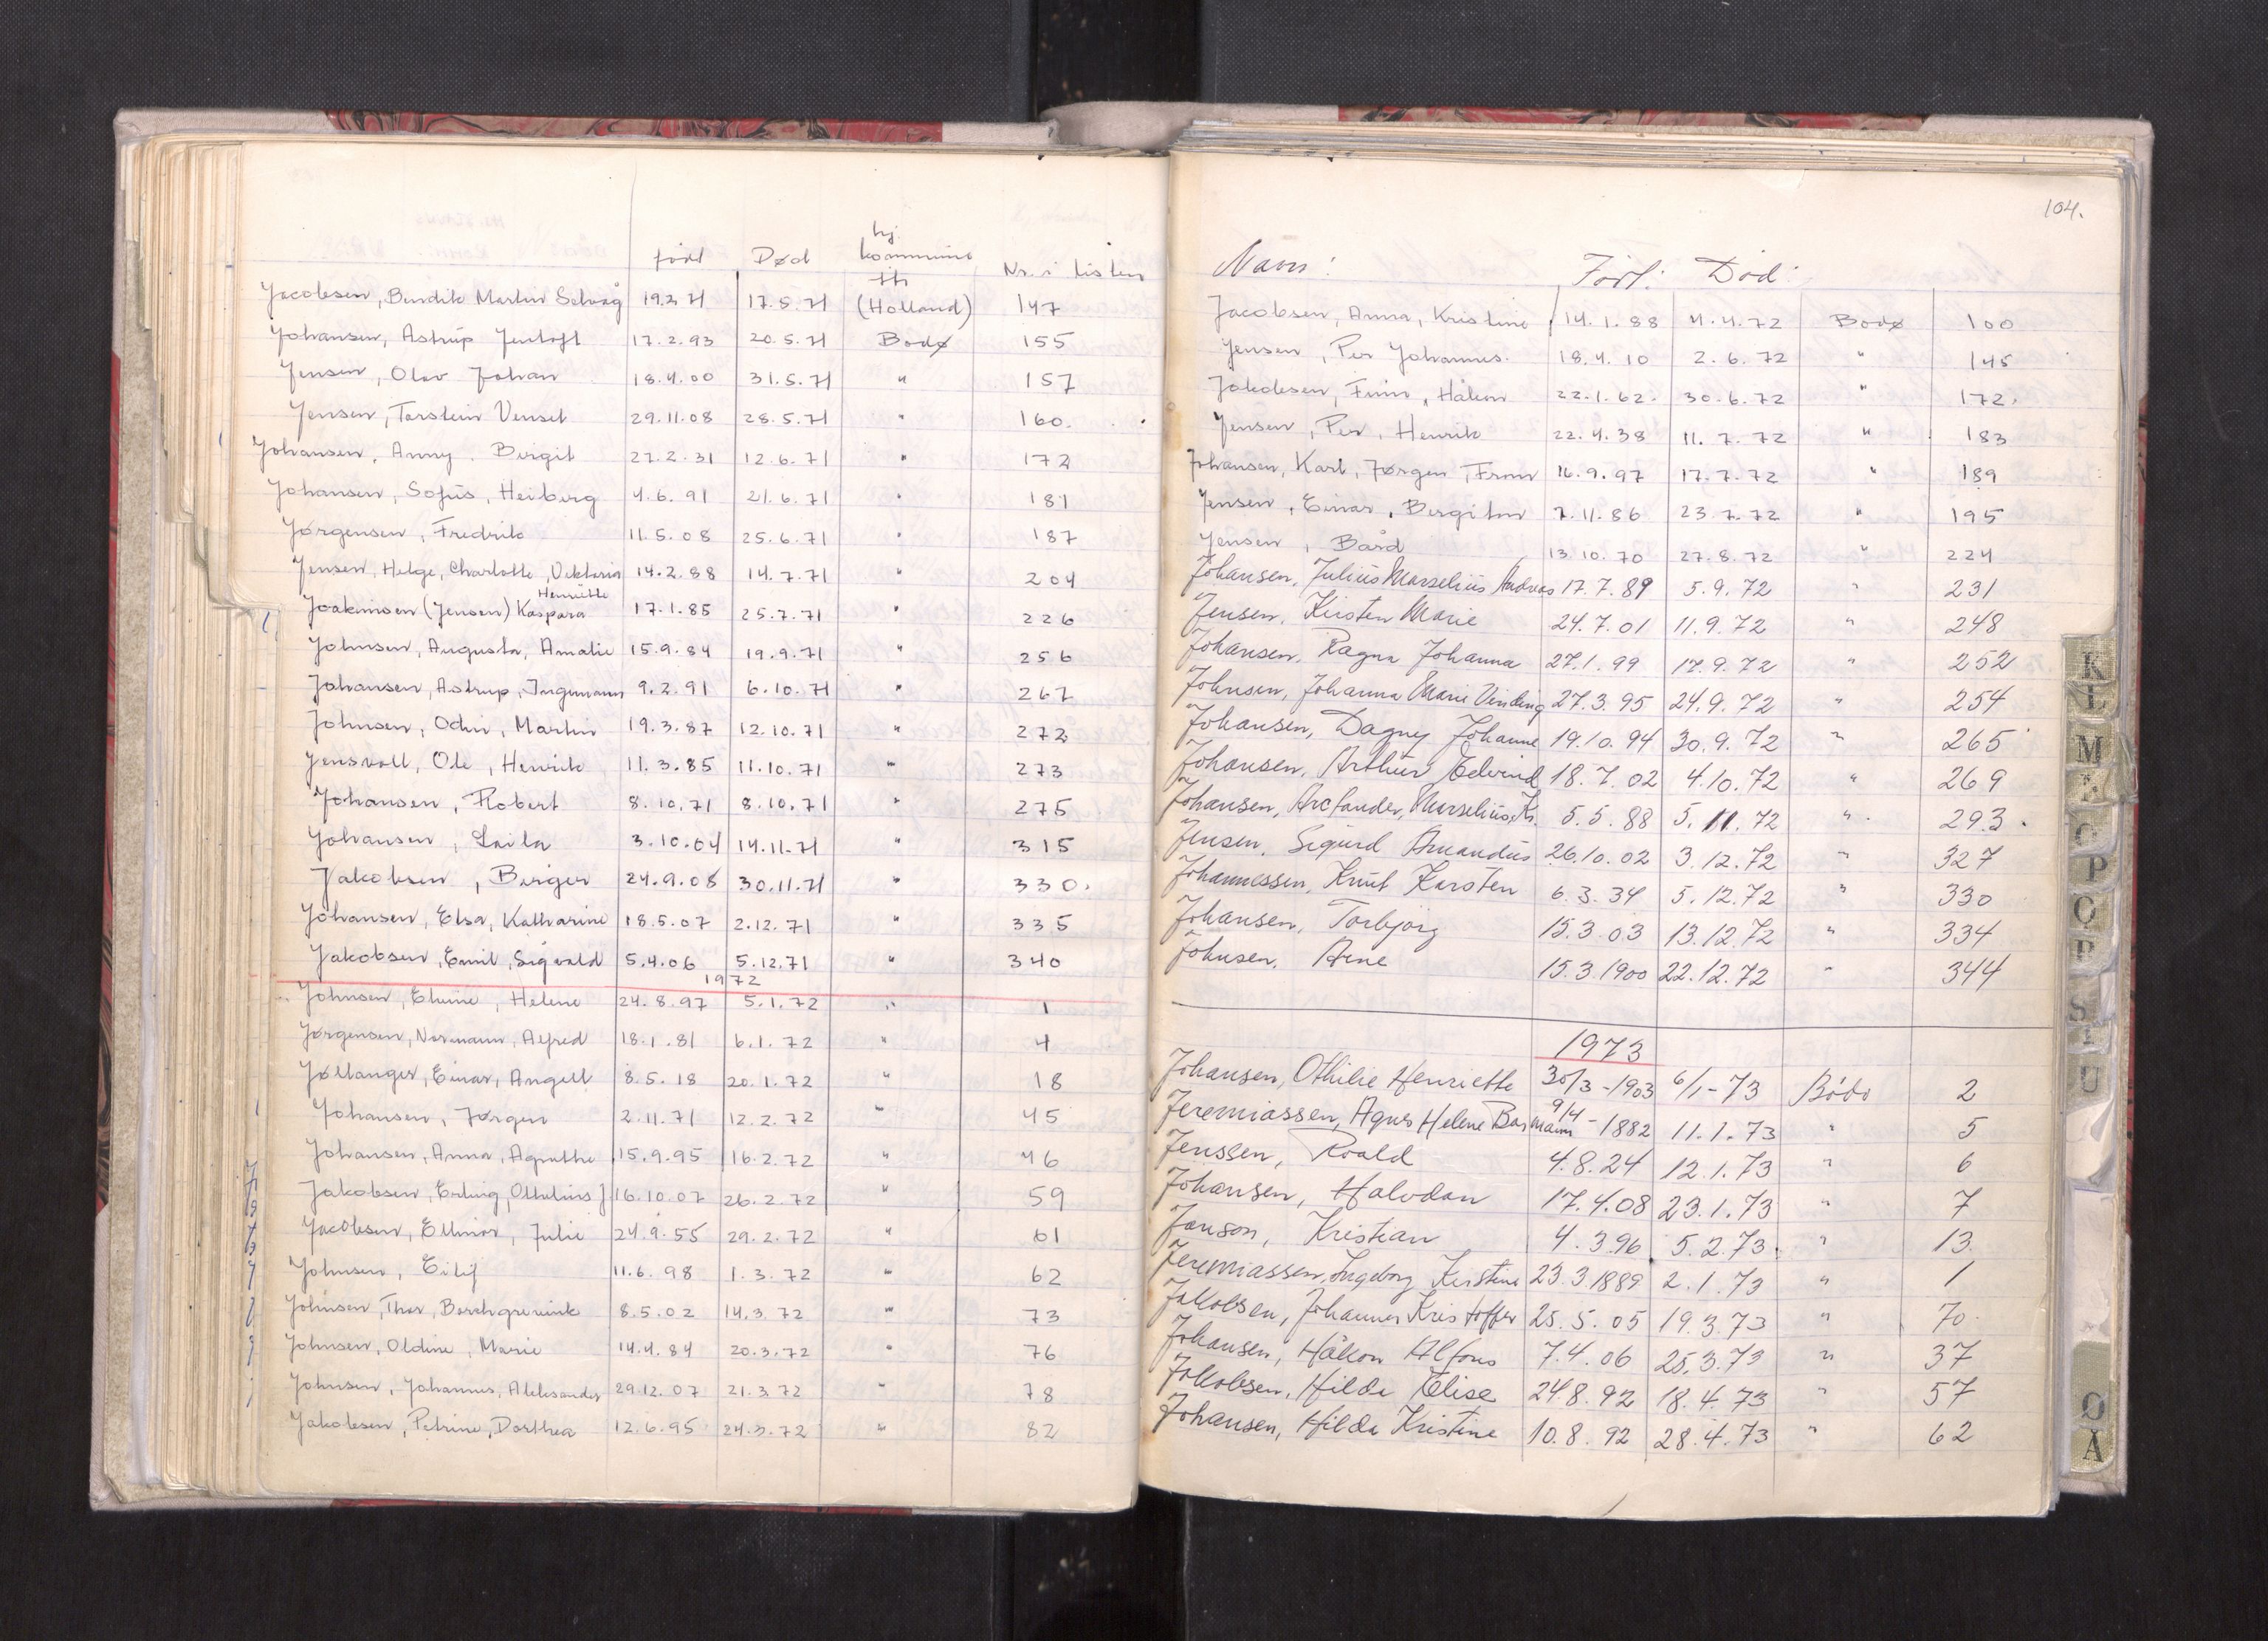 født Død hj. kommune Nr. i listen
Jacobsen, Bendik Martin Selvåg 19.2.71 17.5.71 (Holland) 147
Johansen, Astrup Jentoft 17.2.93 20.5.71 Bodø 155
Jensen, Olav Johan 18.4.00 31.5.71 " 157
Jensen, Torstein Venset 29.11.08 28.5.71 " 160.
Johansen, Anny. Birgit 27.2.31 12.6.71 " 172
Johansen, Sofus, Heiberg 4.6.91 21.6.71 " 181
Jørgensen, Fredrik 11.5.08 25.6.71 " 187
Jensen, Helge, Charlotte, Viktoria 14.2.88 14.7.71 " 204
Henriette
Joakimsen (Jensen) Kaspara 17.1.85 25.7.71 " 226
Johnsen, Augusta, Amalie 15.9.84 19.9.71 " 256
Johansen, Astrup, Ingemann 9.2.91 6.10.71 " 267
Johnsen, Odin, Martin 19.3.87 12.10.71 " 272
Jensvoll, Ole, Henrik 11.3.85 11.10.71 " 273
Johansen, Robert 8.10.71 8.10.71 " 275
Johansen, Laila 3.10.64 14.11.71 " 315
Jakobsen, Birger 24.9.08 30.11.71 " 330.
Johansen, Elsa, Katharine 18.5.07 2.12.71 " 335
Jakobsen, Emil, Sigvald 5.4.06 5.12.71 " 340
1972
Johnsen, Eline, Helene 24.8.97 5.1.72 " 1
Jørgensen, Normann, Alfred 18.1.81 6.1.72 " 4
Jøllanger, Einar, Angell 8.5.18 20.1.72 " 18
Johansen, Jørgen 2.11.71 12.2.72 " 45
Johansen, Anna, Agnethe 15.9.95 16.2.72 " 46
Jakobsen, Erling, Othelius J 16.10.07 26.2.72 " 59
Jacobsen, Ellinor, Julie 24.9.55 29.2.72 " 61
Johnsen, Eilif 11.6.98 1.3.72 " 62
Johnsen, Thor, Borchgrevink 8.5.02 14.3.72 " 73
Johnsen, Oldine, Marie 14.4.84 20.3.72 " 76
Johnsen, Johannes, Aleksander 29.12.07 21.3.72 " 78
Jakobsen, Petrine, Dorthea 12.6.95 24.3.72 " 82
104.
Navn: Født: Død:
Jacobsen, Anna, Kristine 14.1.88 4.4.72 Bodø 100
Jensen, Per Johannes. 18.4.10 2.6.72 " 145
Jakobsen, Finn, Håkon 22.1.62. 30.6.72 " 172.
Jensen, Per, Henrik 22.4.38 11.7.72 " 183
Johansen, Karl, Jørgen, From 16.9.97 17.7.72 " 189
Jensen, Einar, Bergiton 7.11.86 23.7.72 " 195
Jensen, Bård 13.10.70 27.8.72 " 224
Johansen, Julius Marselius Andreas 17.7.89 5.9.72 " 231
Jensen, Kirsten Marie 24.7.01 11.9.72 " 248
Johansen, Ragna Johanna 27.1.99 17.9.72 " 252
Johnsen, Johanna Marie Vinding 27.3.95 24.9.72 " 254
Johansen, Dagny Johanne 19.10.94 30.9.72 " 265
Johansen, Arthur Edvind 18.7.02 4.10.72 " 269
Johansen, Arcfander, Marselius, Kr. 5.5.88 5.11.72 " 293.
Jensen, Sigurd Amandus 26.10.02 3.12.72 " 327
Johannessen, Knut Karsten 6.3.34 5.12.72 " 330
Johansen, Torbjørg 15.3.03 13.12.72 " 334
Johnsen, Arne 15.3.1900 22.12.72 " 344
1973
Johansen, Othilie Henriette 30/3-1903 6/1-73 Bodø 2
Jeremiassen, Agnes Helene Bosmann 9/4-1882 11.1.73 " 5
Jenssen, Roald 4.8.24 12.1.73 " 6
Johansen, Halvdan 17.4.08 23.1.73 " 7
Janson, Kristian 4.3.96 5.2.73. " 13.
Jeremiassen, Ingeborg Kirstine 23.3.1889 2.1.73 " 1
Jakobsen, Johannes Kristoffer 25.5.05 19.3.73 " 70.
Johansen, Håkon Alfons 7.4.06 25.3.73 " 37
Jakobsen, Hilda Elise 24.8.92 18.4.73 " 57
Johansen, Hilda Kristine 10.8.92 28.4.73 " 62
K
L
M
O
P
R
S
U
Ø
Å